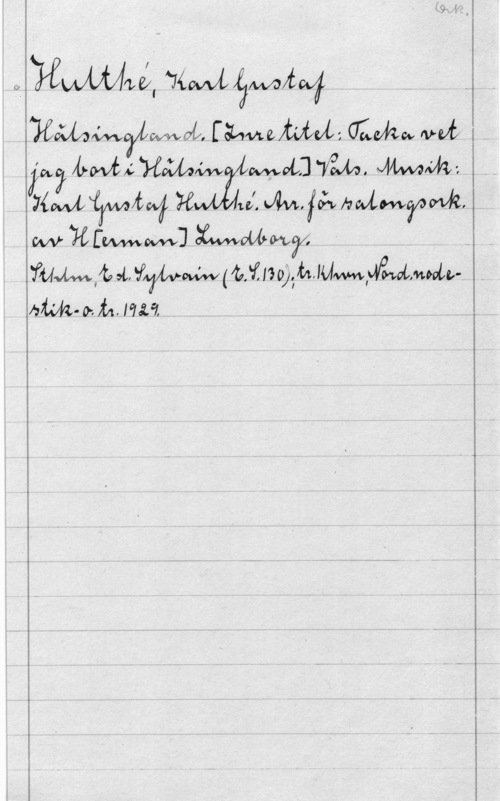 Ork.
Hulthé, Karl Gustaf
Hälsingland. [Inre titel: Tacka vet
jag bort i Hälsingland.] Vals. Musik:
Karl Gustaf Hulthé. Arr. för salongsork.
av H[erman] Lundborg.
Sthlm, E d. Sylvain (E.S.130); tr. Khvn, Nord. node-
stik- o. tr. 1929.